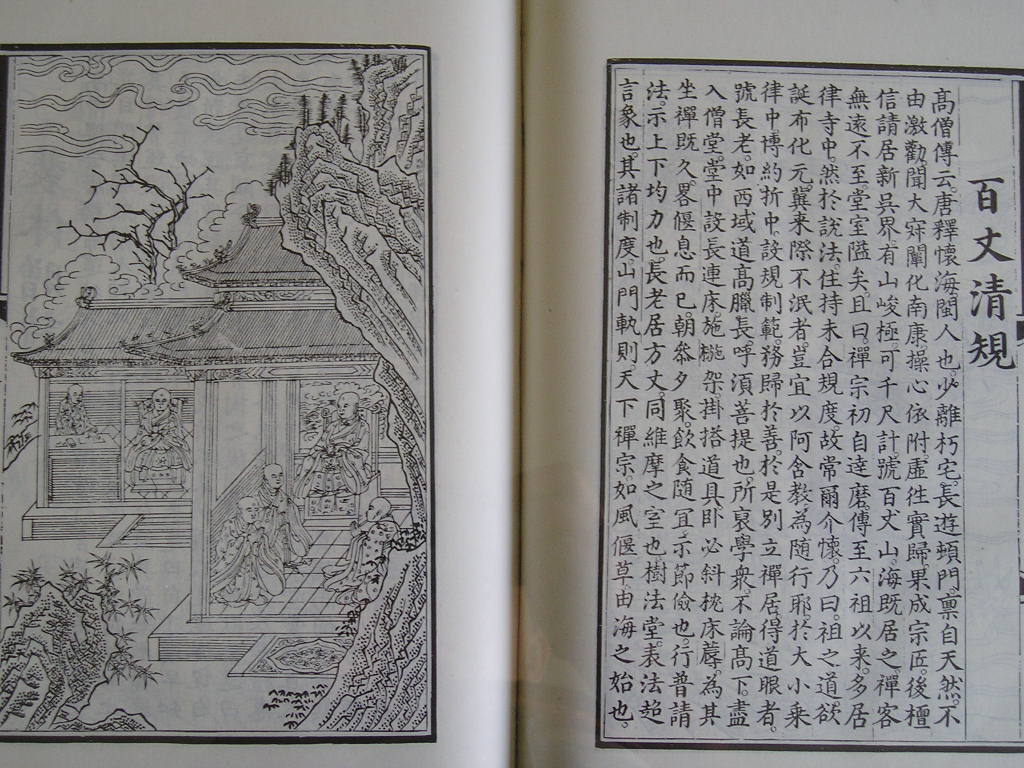 百丈清規
高僧傳云。唐釋懷海閩人也。少離朽宅。長遊頓門。稟自天然。不
由激勸。聞大寂闡化南康。操心依附。虛往實歸。果成宗匠。後檀
信請居新吳界。有山峻極可千尺計。號百丈山。海既居之。禪客
無遠不至。堂室隘矣。且曰。禪宗初自達磨傳至六祖以來。多居
律寺中。然於說法住持未合規度。故常爾介懷。乃曰。祖之道欲
誕布化元。冀來際不泯者。豈宜以阿含教為隨行耶。於大小乘
律中博約折中。設規制範。務歸於善。於是別立禪居。得道眼者。
號長老。如西域道高臘長。呼須菩提也。所裒學眾。不論高下。盡
入僧堂。堂中設長連床。施椸架。掛搭道具。臥必斜枕床蓐。為其
坐禪既久。畧偃息而已。朝參夕聚。飲食隨宜。示節儉也。行普請
法。示上下均力也。長老居方丈。同維摩之室也。樹法堂。表法超
言象也。其諸制度。山門軌則。天下禪宗。如風偃草。由海之始也。